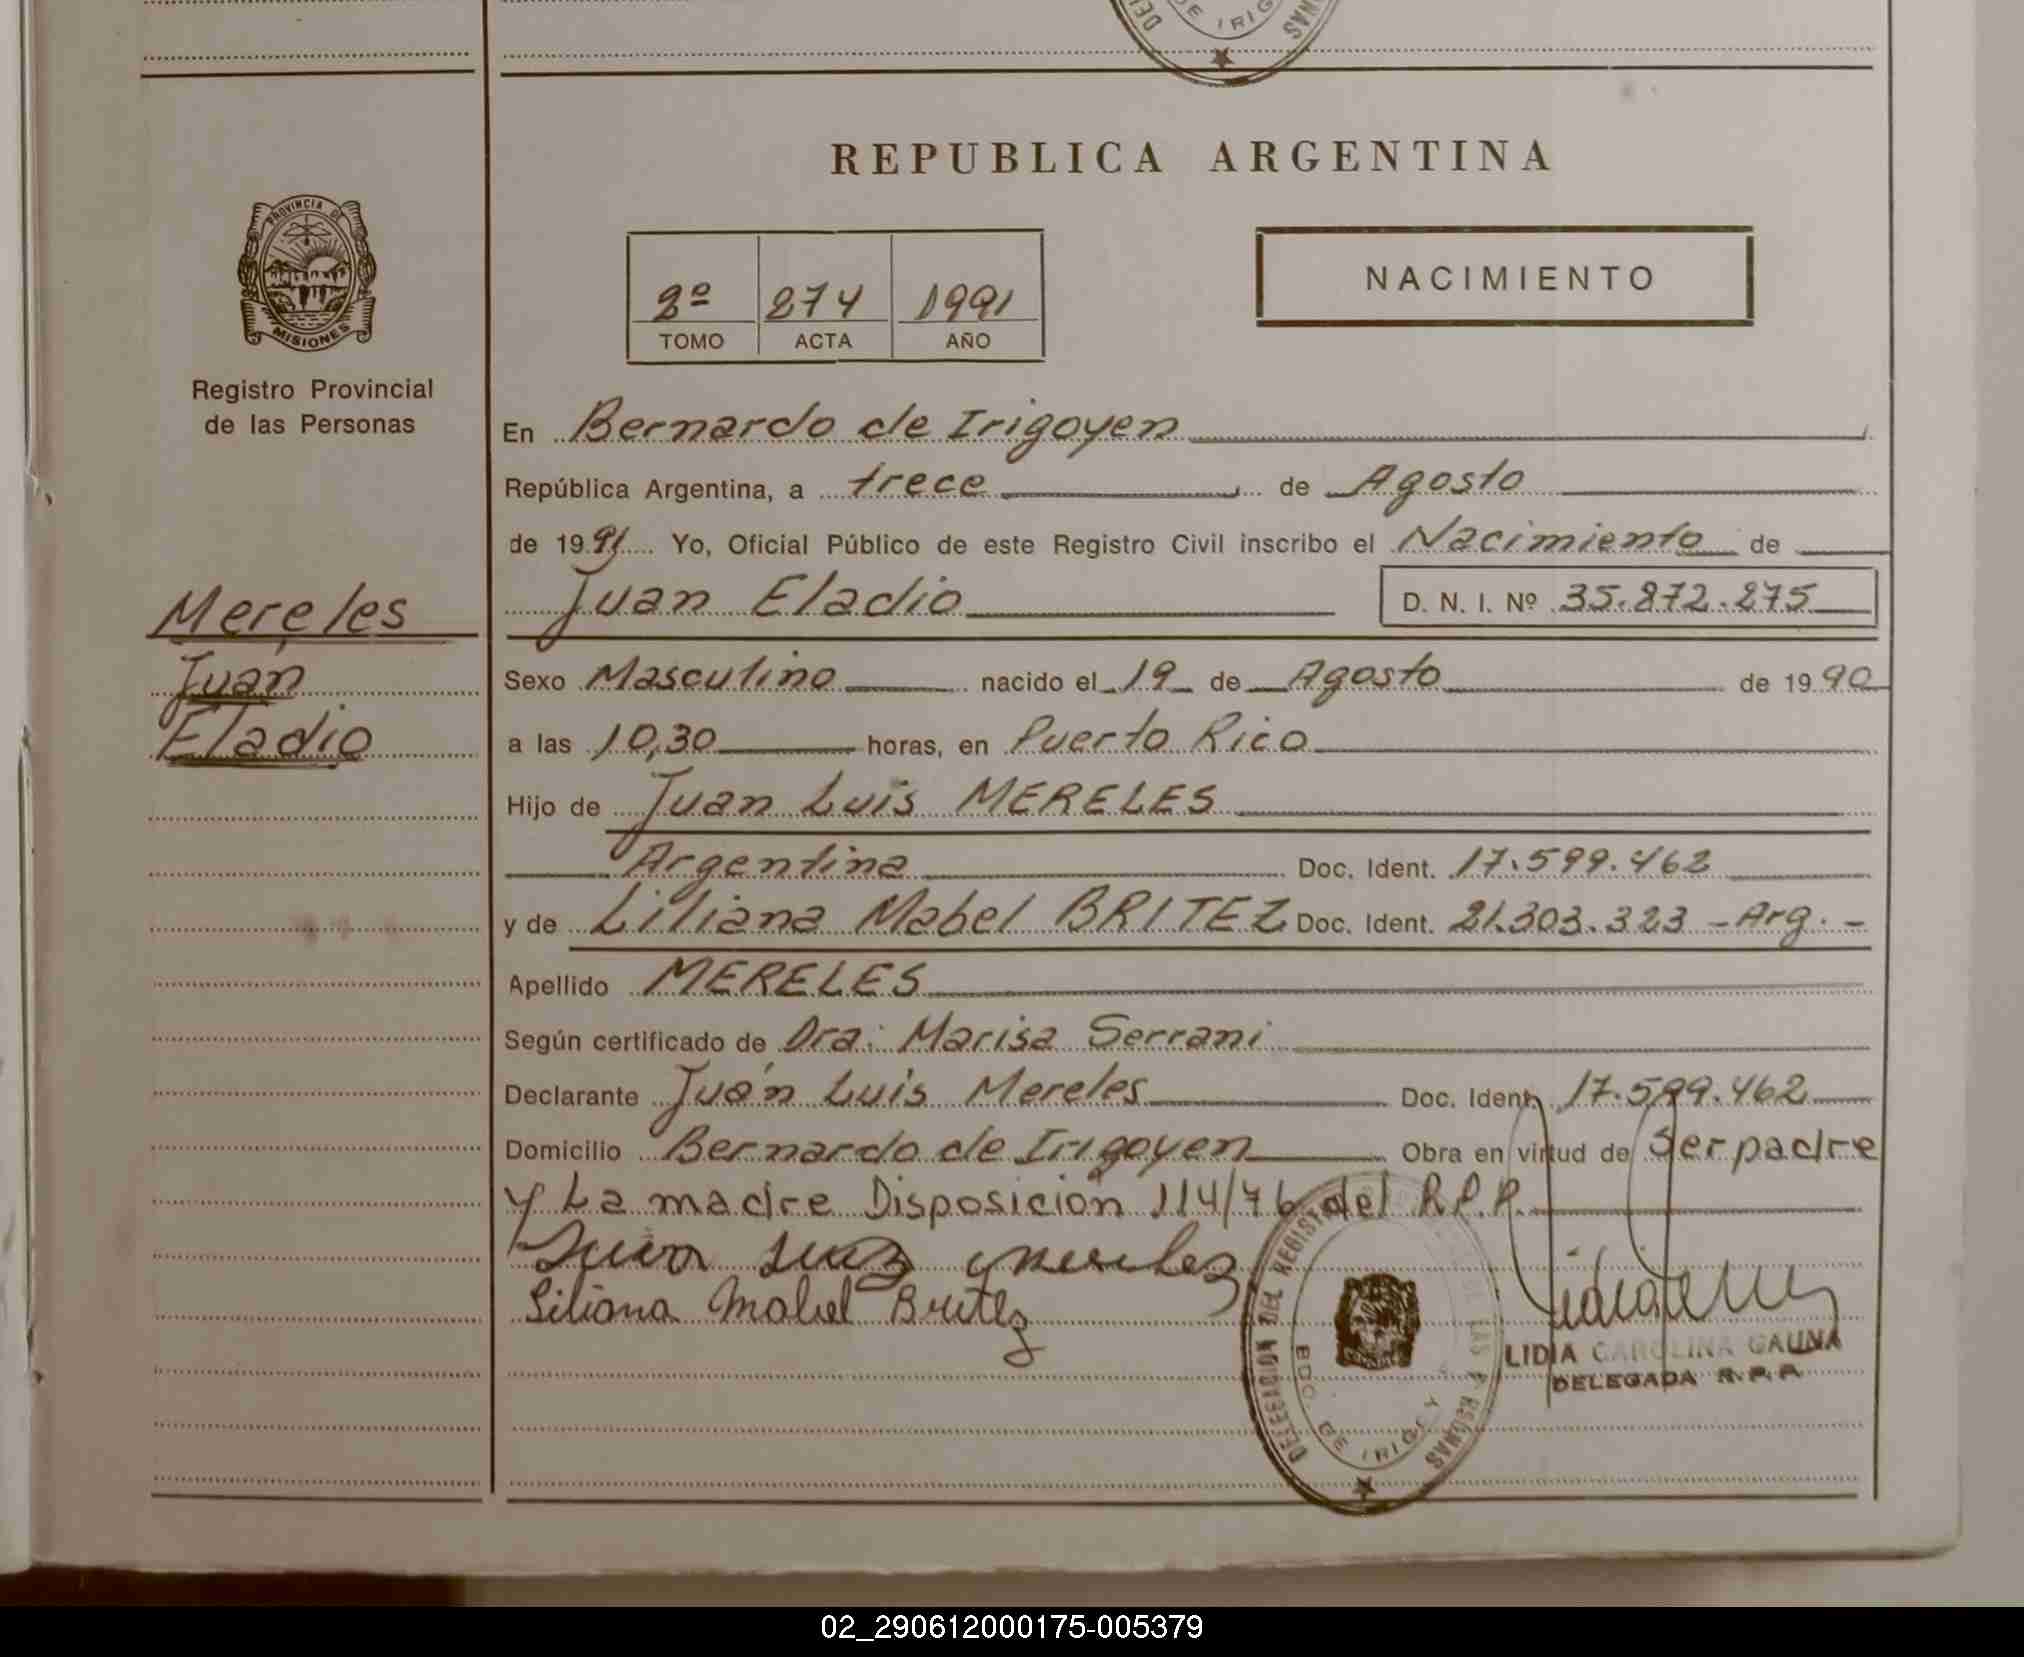 DEL
DE IRIG
NAS
REPUBLICA ARGENTINA
PROVINCIA DE
MISIONES
2º 274 1991
TOMO ACTA AÑO
NACIMIENTO
Registro Provincial
de las Personas
En Bernardo de Irigoyen
República Argentina, a trece de Agosto
de 1991 Yo, Oficial Público de este Registro Civil inscribo el Nacimiento de
Juan Eladio D. N. I. Nº 35.872.275
Mereles
Juan
Eladio
Sexo Masculino nacido el 19 de Agosto de 1990
a las 10,30 horas, en Puerto Rico
Hijo de Juan Luis MERELES
Argentina Doc. Ident. 17.599.462
y de Liliana Mabel BRITEZ Doc. Ident. 21.303.323 - Arg. -
Apellido MERELES
Según certificado de Dra: Marisa Serrani
Declarante Juan Luis Mereles Doc. Ident. 17.599.462
Domicilio Bernardo de Irigoyen Obra en virtud de Ser padre
y La madre Disposición 114/76 del R.P.P.
Juan Luiz Mereles
Liliana Mabel Britez
DELEGACION DEL REGISTRO DE LAS PERSONAS
BDO. DE IRIGOY
LIDIA CAROLINA GAUNA
DELEGADA R.P.P.
02_290612000175-005379